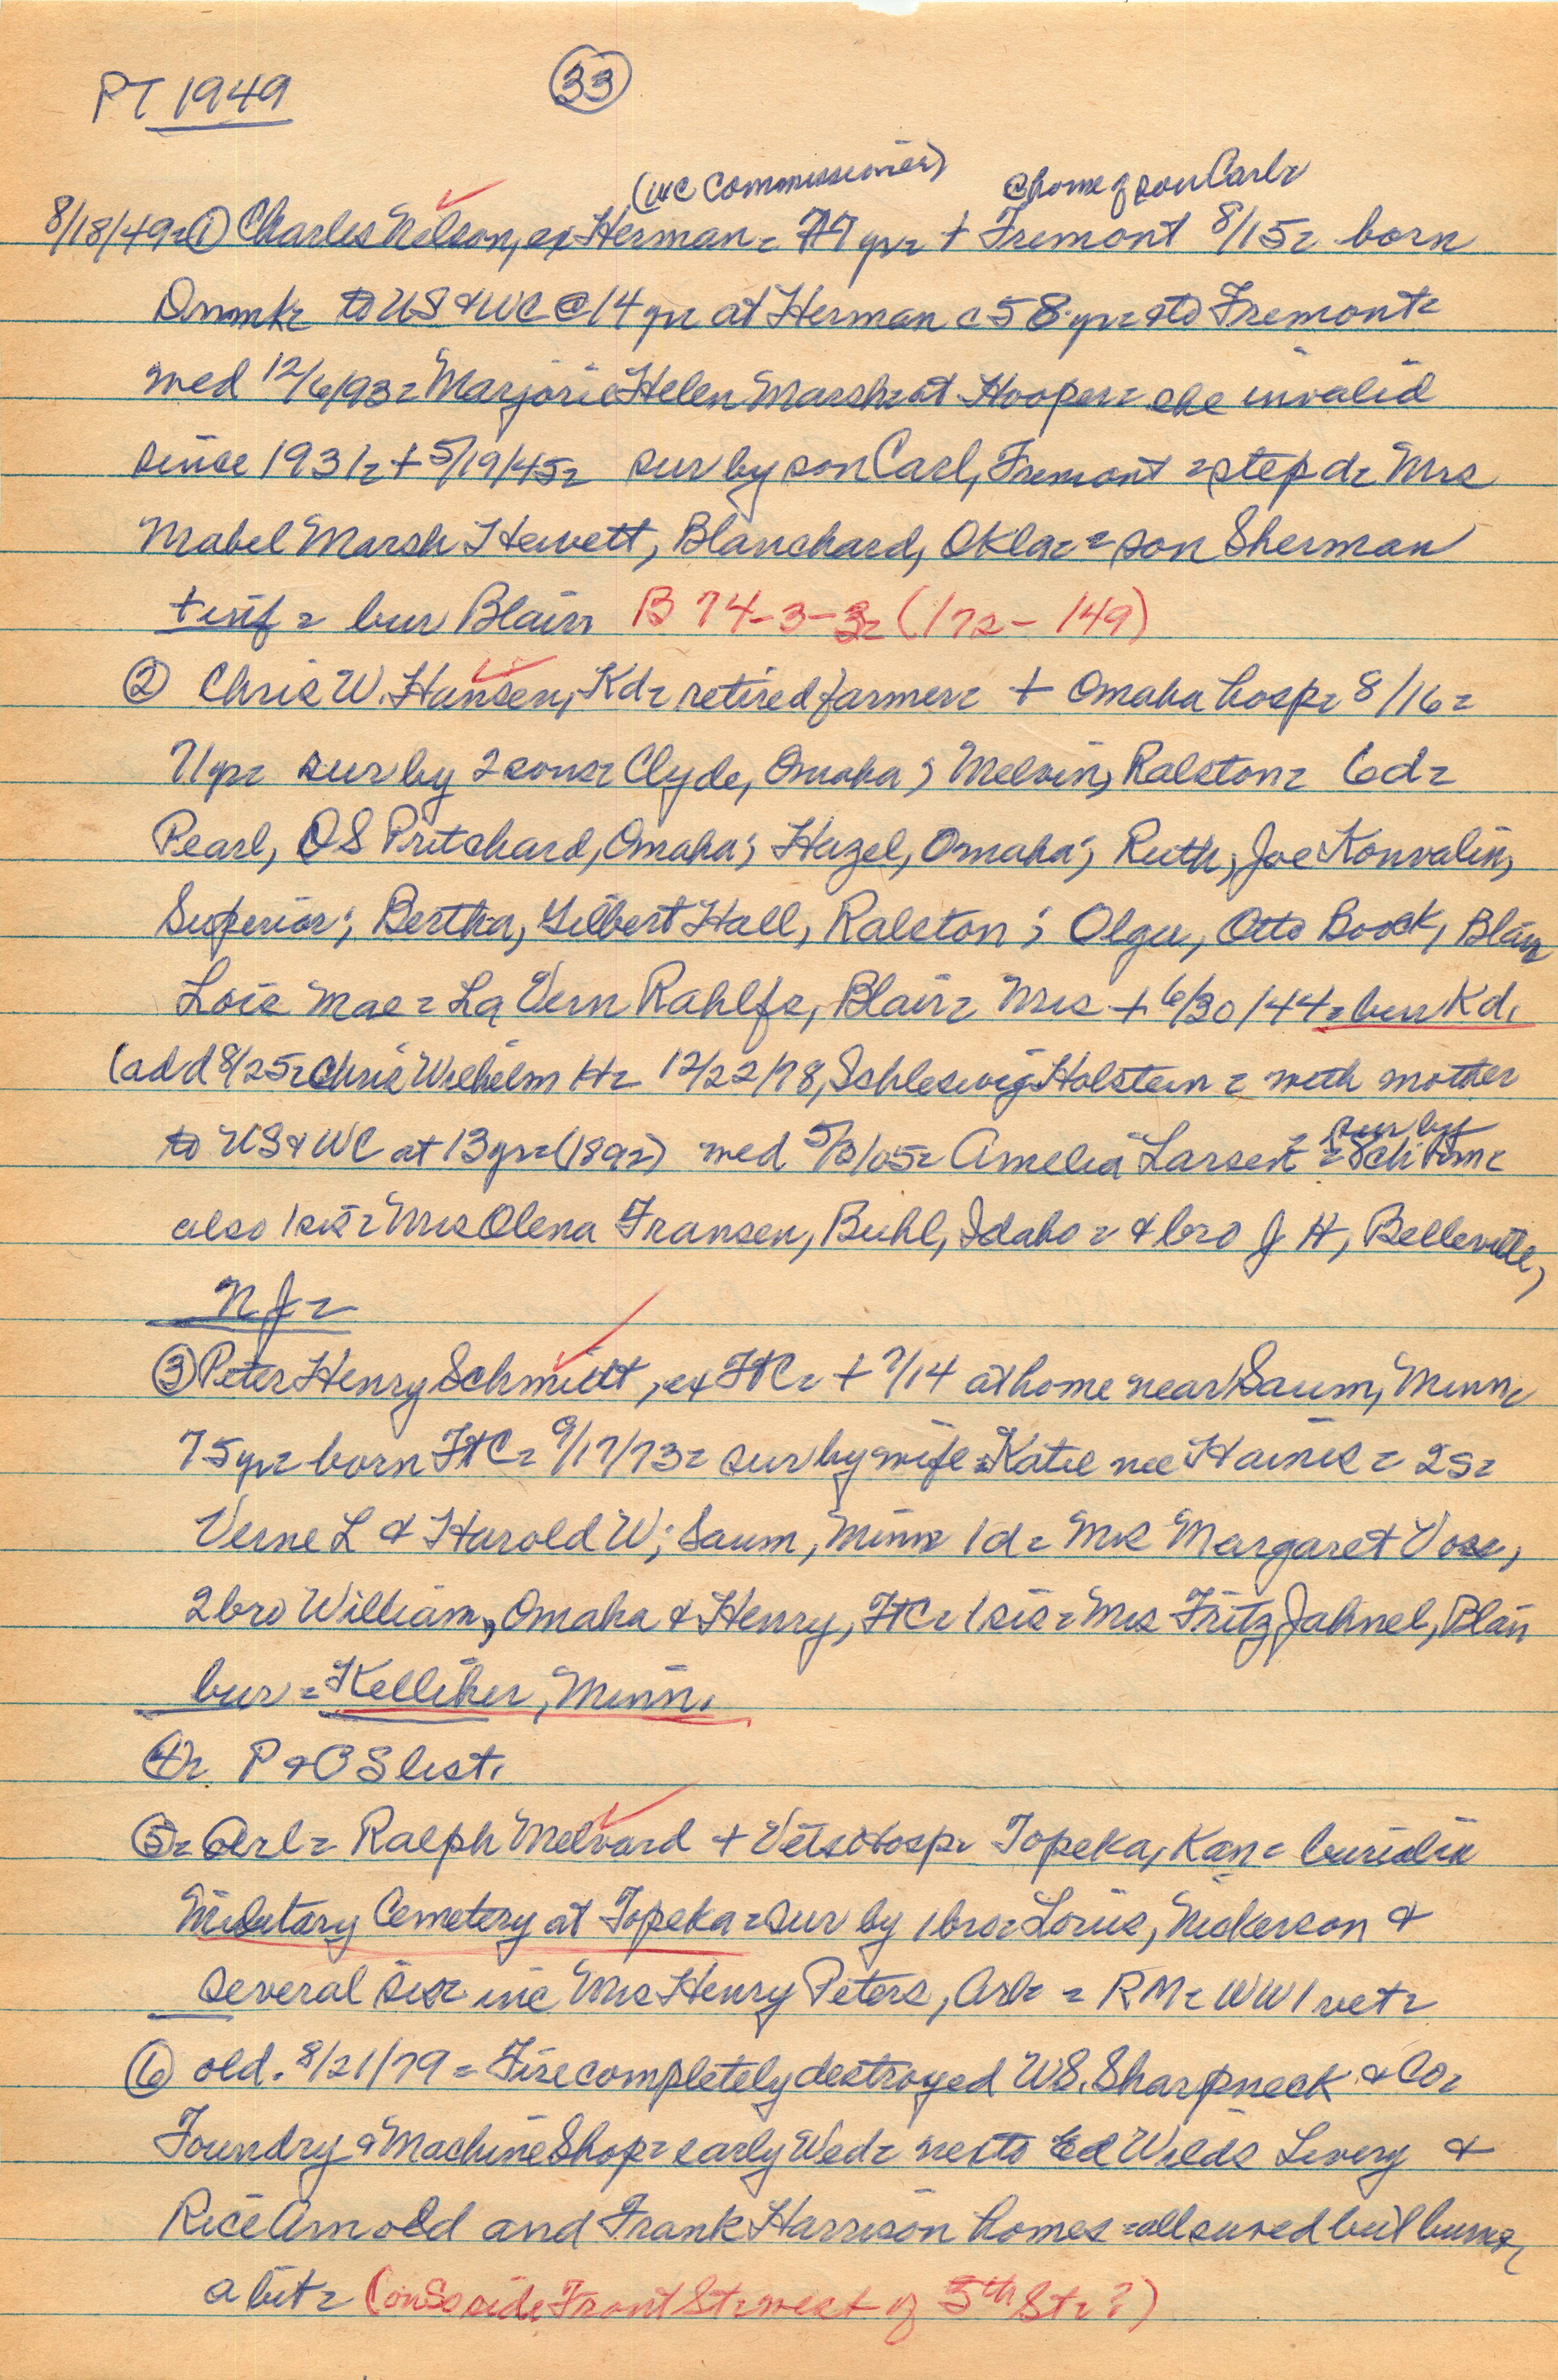 PT 1949
33
(WC Commissioner) @ home of son Carl=
8/18/49= ① Charles Nelson, ex Herman= 77 yr= + Fremont 8/15= born
Dnmk= to US & WC @ 14 yr= at Herman c 58 yr= & to Fremont=
med 12/6/93= Marjorie Helen Marsh= at Hooper= she invalid
since 1931= + 5/19/45= sur by son Carl, Fremont = step d= Mrs
Mabel Marsh Hewett, Blanchard, Okla= = son Sherman
+ inf= bur Blair= B 74-3-3= (172-149)
② Chris W. Hansen, Kd= retired farmer= + Omaha hosp= 8/16=
71 yr= sur by 2 sons= Clyde, Omaha; Melvin, Ralston= 6 d=
Pearl, OS Pritchard, Omaha; Hazel, Omaha; Ruth, Joe Konvalin,
Superior; Bertha, Gilbert Hall, Ralston; Olga, Otto Boock, Blair
Lois Mae= La Vern Rahlfs, Blair= Mrs + 6/30/44= bur Kd.
(add 8/25= Chris Wilhelm H= 12/22/78, Schleswig Holstein = with mother
to US & WC at 13 yr= (1892) med 5/3/05= Amelia Larsen = sur by
also 1 sis= Mrs Olena Fransen, Buhl, Idaho = & bro J H, Belleville,
N J=
③ Peter Henry Schmidt, ex FtC= + 7/14 at home near Saum, Minn=
75 yr= born FtC= 9/17/73= sur by wife Katie nee Haines = 2 s=
Verne L & Harold W; Saum, Minn= 1 d= Mrs Margaret Vose,
2 bro William, Omaha & Henry, FtC= 1 sis= Mrs Fritz Jahnel, Blair
bur= Kelliher, Minn.
④= P & O S list.
⑤= Arl= Ralph Melvard + Vets Hosp= Topeka, Kan= burial in
Military Cemetery at Topeka= sur by 1 bro= Loris, Nickerson &
several sis= inc Mrs Henry Peters, Arl= = RM= WW1 vet=
⑥ old. 8/21/79= Fire completely destroyed W.S. Sharpneck & Co=
Foundry & Machine Shop= early Wed= next to Ed Wilds Livery &
Rice Arnold and Frank Harrison homes= all saved but burns
a bit= (on So side Front St= west of 5th St=?)